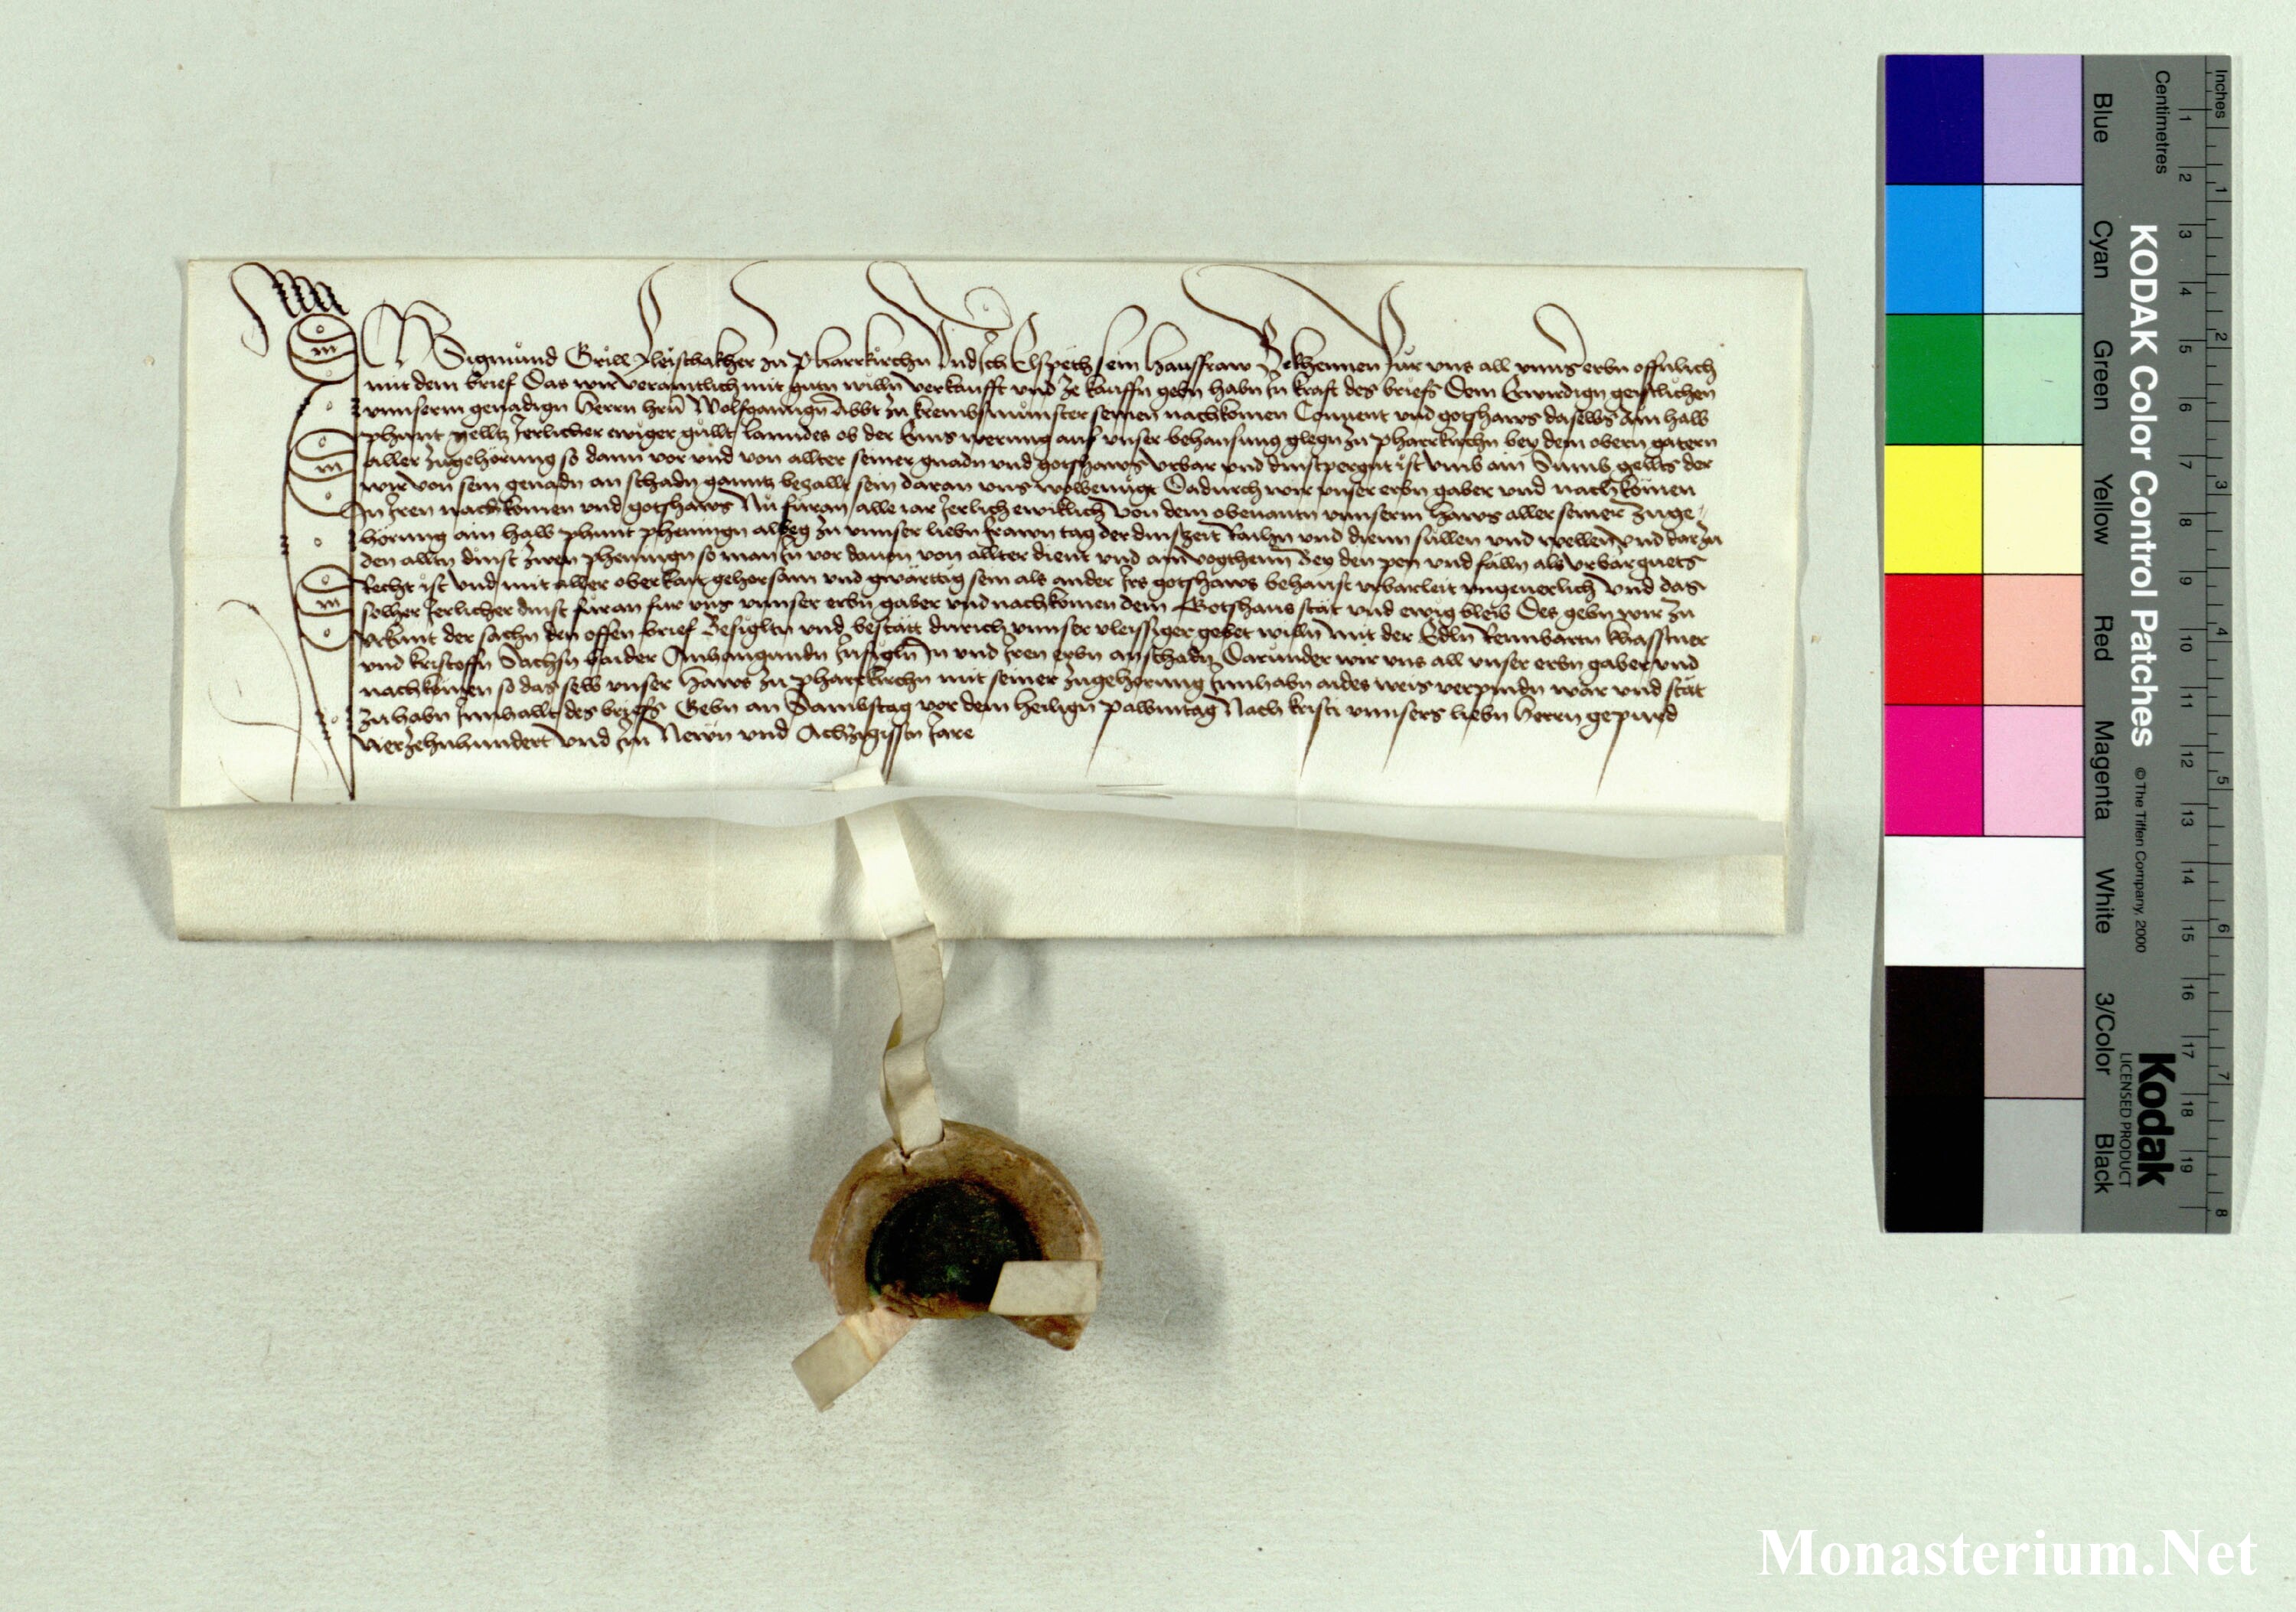 Ich Sigmund Grill fleischakher zu Pharrkirchn Und Ich Elspeth sein hausfraw Bekhennen Fur uns all unns erbn offnlich
mit dem brief Das wir veramtlich mit gutn willn verkaufft und ze kauffn gebn habn In kraft des briefs Dem Erwirdign geistlichen
unnserm genadign herrn hrn Wolfganngn Abbt zu krembsmunster seinen nachkomen Convent und gotshaws daselbs Ain halb
phunt gellts Jerlicher ewiger gullt lanndes ob der Enns werung auf unser behausung glegn zu pharrkirchn bey dem obern gatern
aller zugehorung so dann vor und von allter seiner gnadn und gotshaws urbar und dinstpergut ist umb ain Sumb gellts der
wir von sein genadn an schadn ganntz bezallt sein daran uns wolbenugt Dadurch wir unser erbn gaber und nachkomen
In Iren nachkomen und gotshaws Nu furan alle iar Jerlich ewiklich von dem obenantn unnserm haws aller seiner zuge-
horung ain halb phunt phenningn albeg zu unnser liebn frawn tag der dinstzeit Raihn und dienn sullen und wellen und darzu
den alltn dinst zwen phennign so man In vor davon von allter dient und am vogtheim Bey den pen und falln als urbarguets
Recht ist und mit aller oberkait gehorsam und gwarttig sein als ander Irs gotshaws behaust urbarleit ungeverlich und das
solher Jerlicher dinst furan fur uns unnser erbn gaber und nachkomen dem Gotshaus stat und ewig bleib Des gebn wir zu
urkunt der sachn den offen brief Besigltn und bestatt durich unnser vleissiger gebet willn mit der Edln
und kristoffn Sachsn baider Anhanngundn Insigln In und Iren erbn an schadn Darunder wir uns all unser erbn gaber und
nachkomen so das selb unser haws zu pharrkirchn mit seiner zugehorung Innhabn aides weis verpindn war und stat
zu habn Innhallt des briefs Gebn an Sambstag vor dem heilign palbmtag Nach kristi unnsers liebn herrn gepurd
vierzehnhundert und Im Newn und Achtzigisstn Jare
Inches
Centimetres
1 2 3 4 5 6 7 8
1 2 3 4 5 6 7 8 9 10 11 12 13 14 15 16 17 18 19
KODAK Color Control Patches
© The Tiffen Company, 2000
Kodak
LICENSED PRODUCT
Blue
Cyan
Green
Yellow
Red
Magenta
White
3/Color
Black
Monasterium.Net